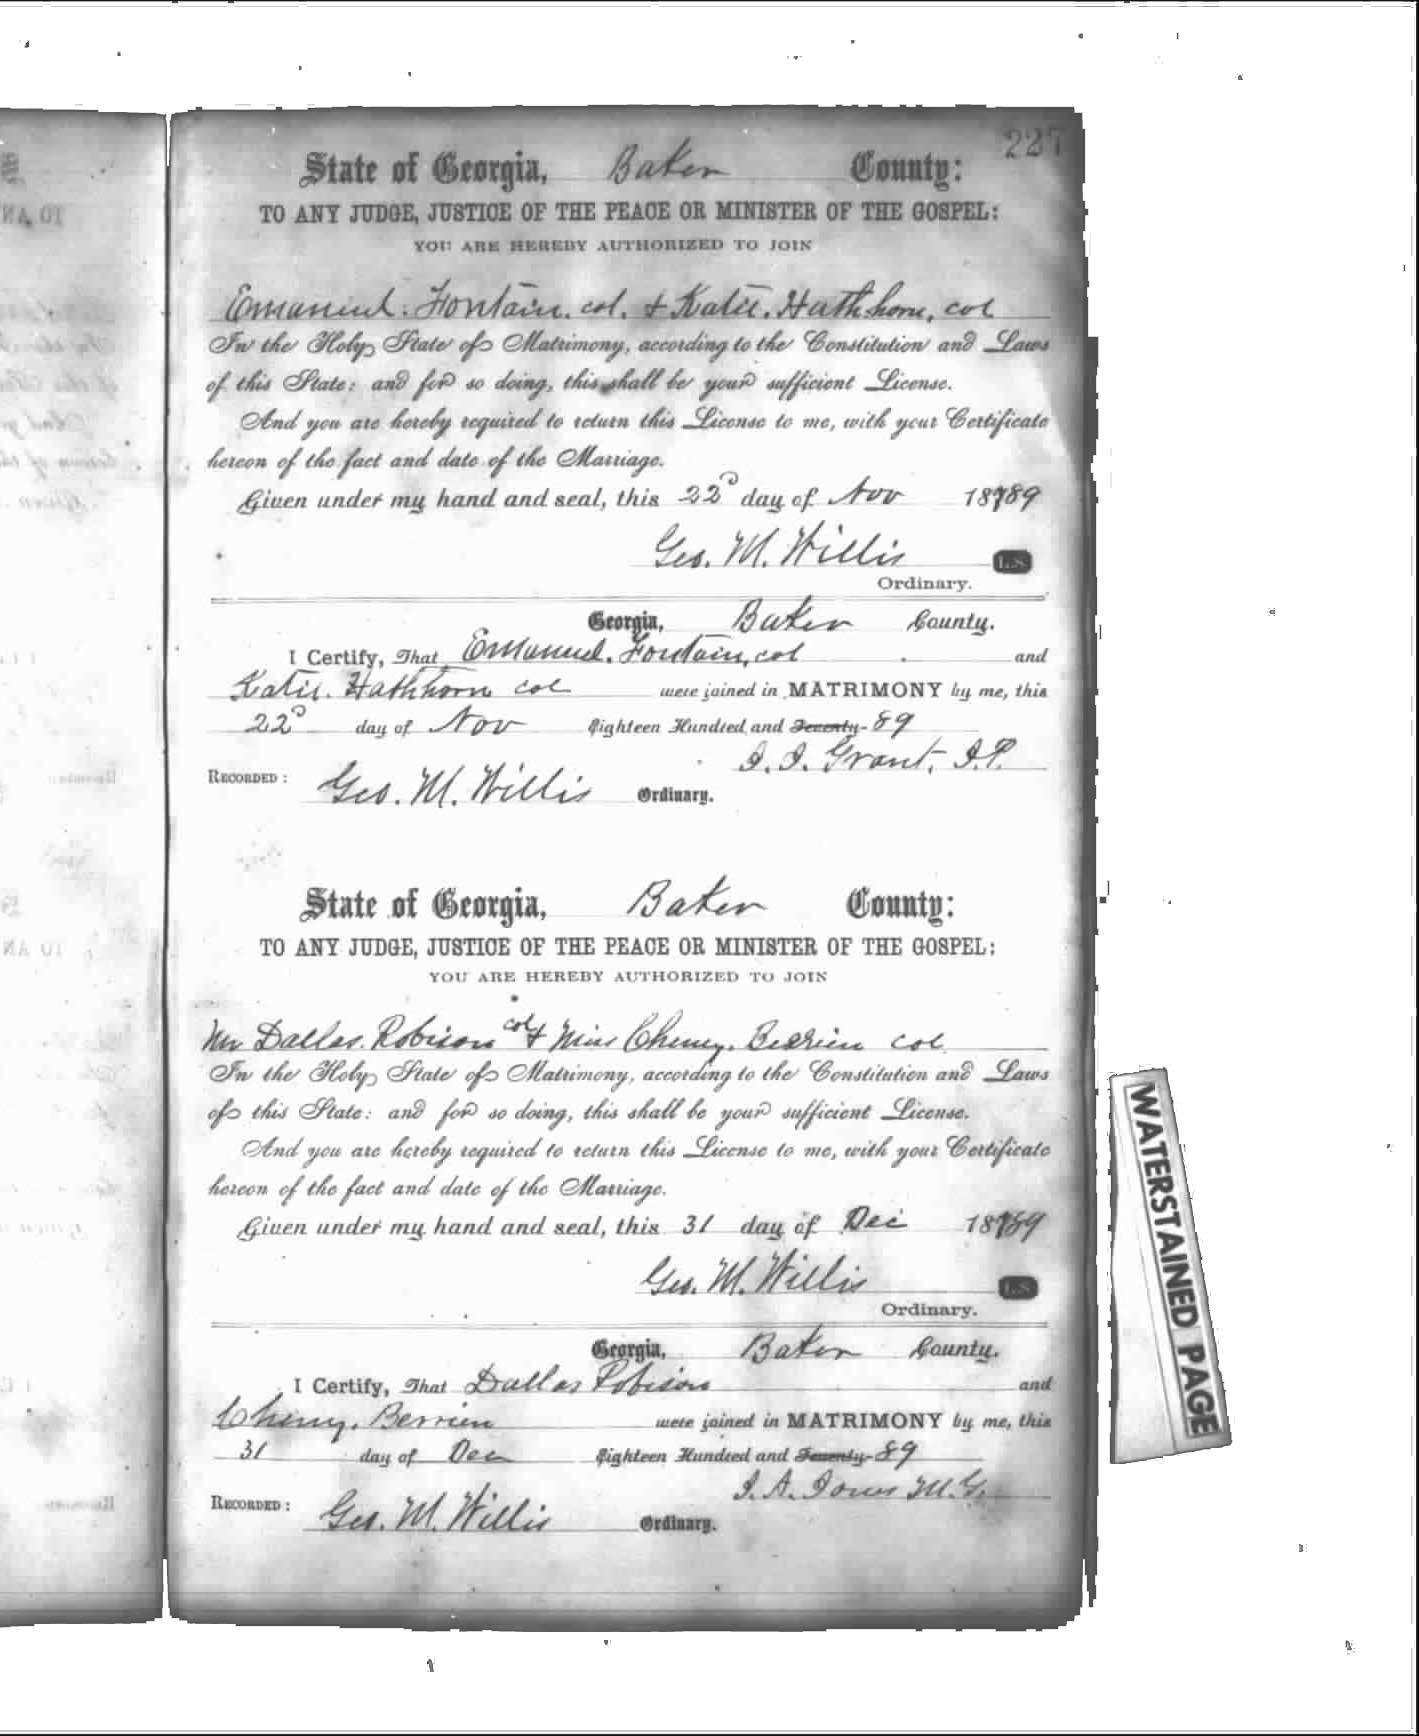 227
State of Georgia, Baker County:
TO ANY JUDGE, JUSTICE OF THE PEACE OR MINISTER OF THE GOSPEL:
YOU ARE HEREBY AUTHORIZED TO JOIN
Emanuel. Fontain. col. & Katie. Hathhorn, col
In the Holy State of Matrimony, according to the Constitution and Laws
of this State: and for so doing, this shall be your sufficient License.
And you are hereby required to return this License to me, with your Certificate
hereon of the fact and date of the Marriage.
Given under my hand and seal, this 22d day of Nov 1889
Geo. M. Willis L.S.
Ordinary.
Georgia, Baker County.
I Certify, That Emanuel. Fontain, col and
Katie. Hathhorn col were joined in MATRIMONY by me, this
22d day of Nov Eighteen Hundred and Seventy-89
J. J. Grant, J.P.
RECORDED: Geo. M. Willis Ordinary.
State of Georgia, Baker County:
TO ANY JUDGE, JUSTICE OF THE PEACE OR MINISTER OF THE GOSPEL:
YOU ARE HEREBY AUTHORIZED TO JOIN
Mr Dallas. Robison col & Miss Cheny. Berrien col
In the Holy State of Matrimony, according to the Constitution and Laws
of this State: and for so doing, this shall be your sufficient License.
And you are hereby required to return this License to me, with your Certificate
hereon of the fact and date of the Marriage.
Given under my hand and seal, this 31 day of Dec 1889
Geo. M. Willis L.S.
Ordinary.
Georgia, Baker County.
I Certify, That Dallas Robison and
Cheny. Berrien were joined in MATRIMONY by me, this
31 day of Dec Eighteen Hundred and Seventy-89
J. A. Jones M.G.
RECORDED: Geo. M. Willis Ordinary.
WATERSTAINED PAGE